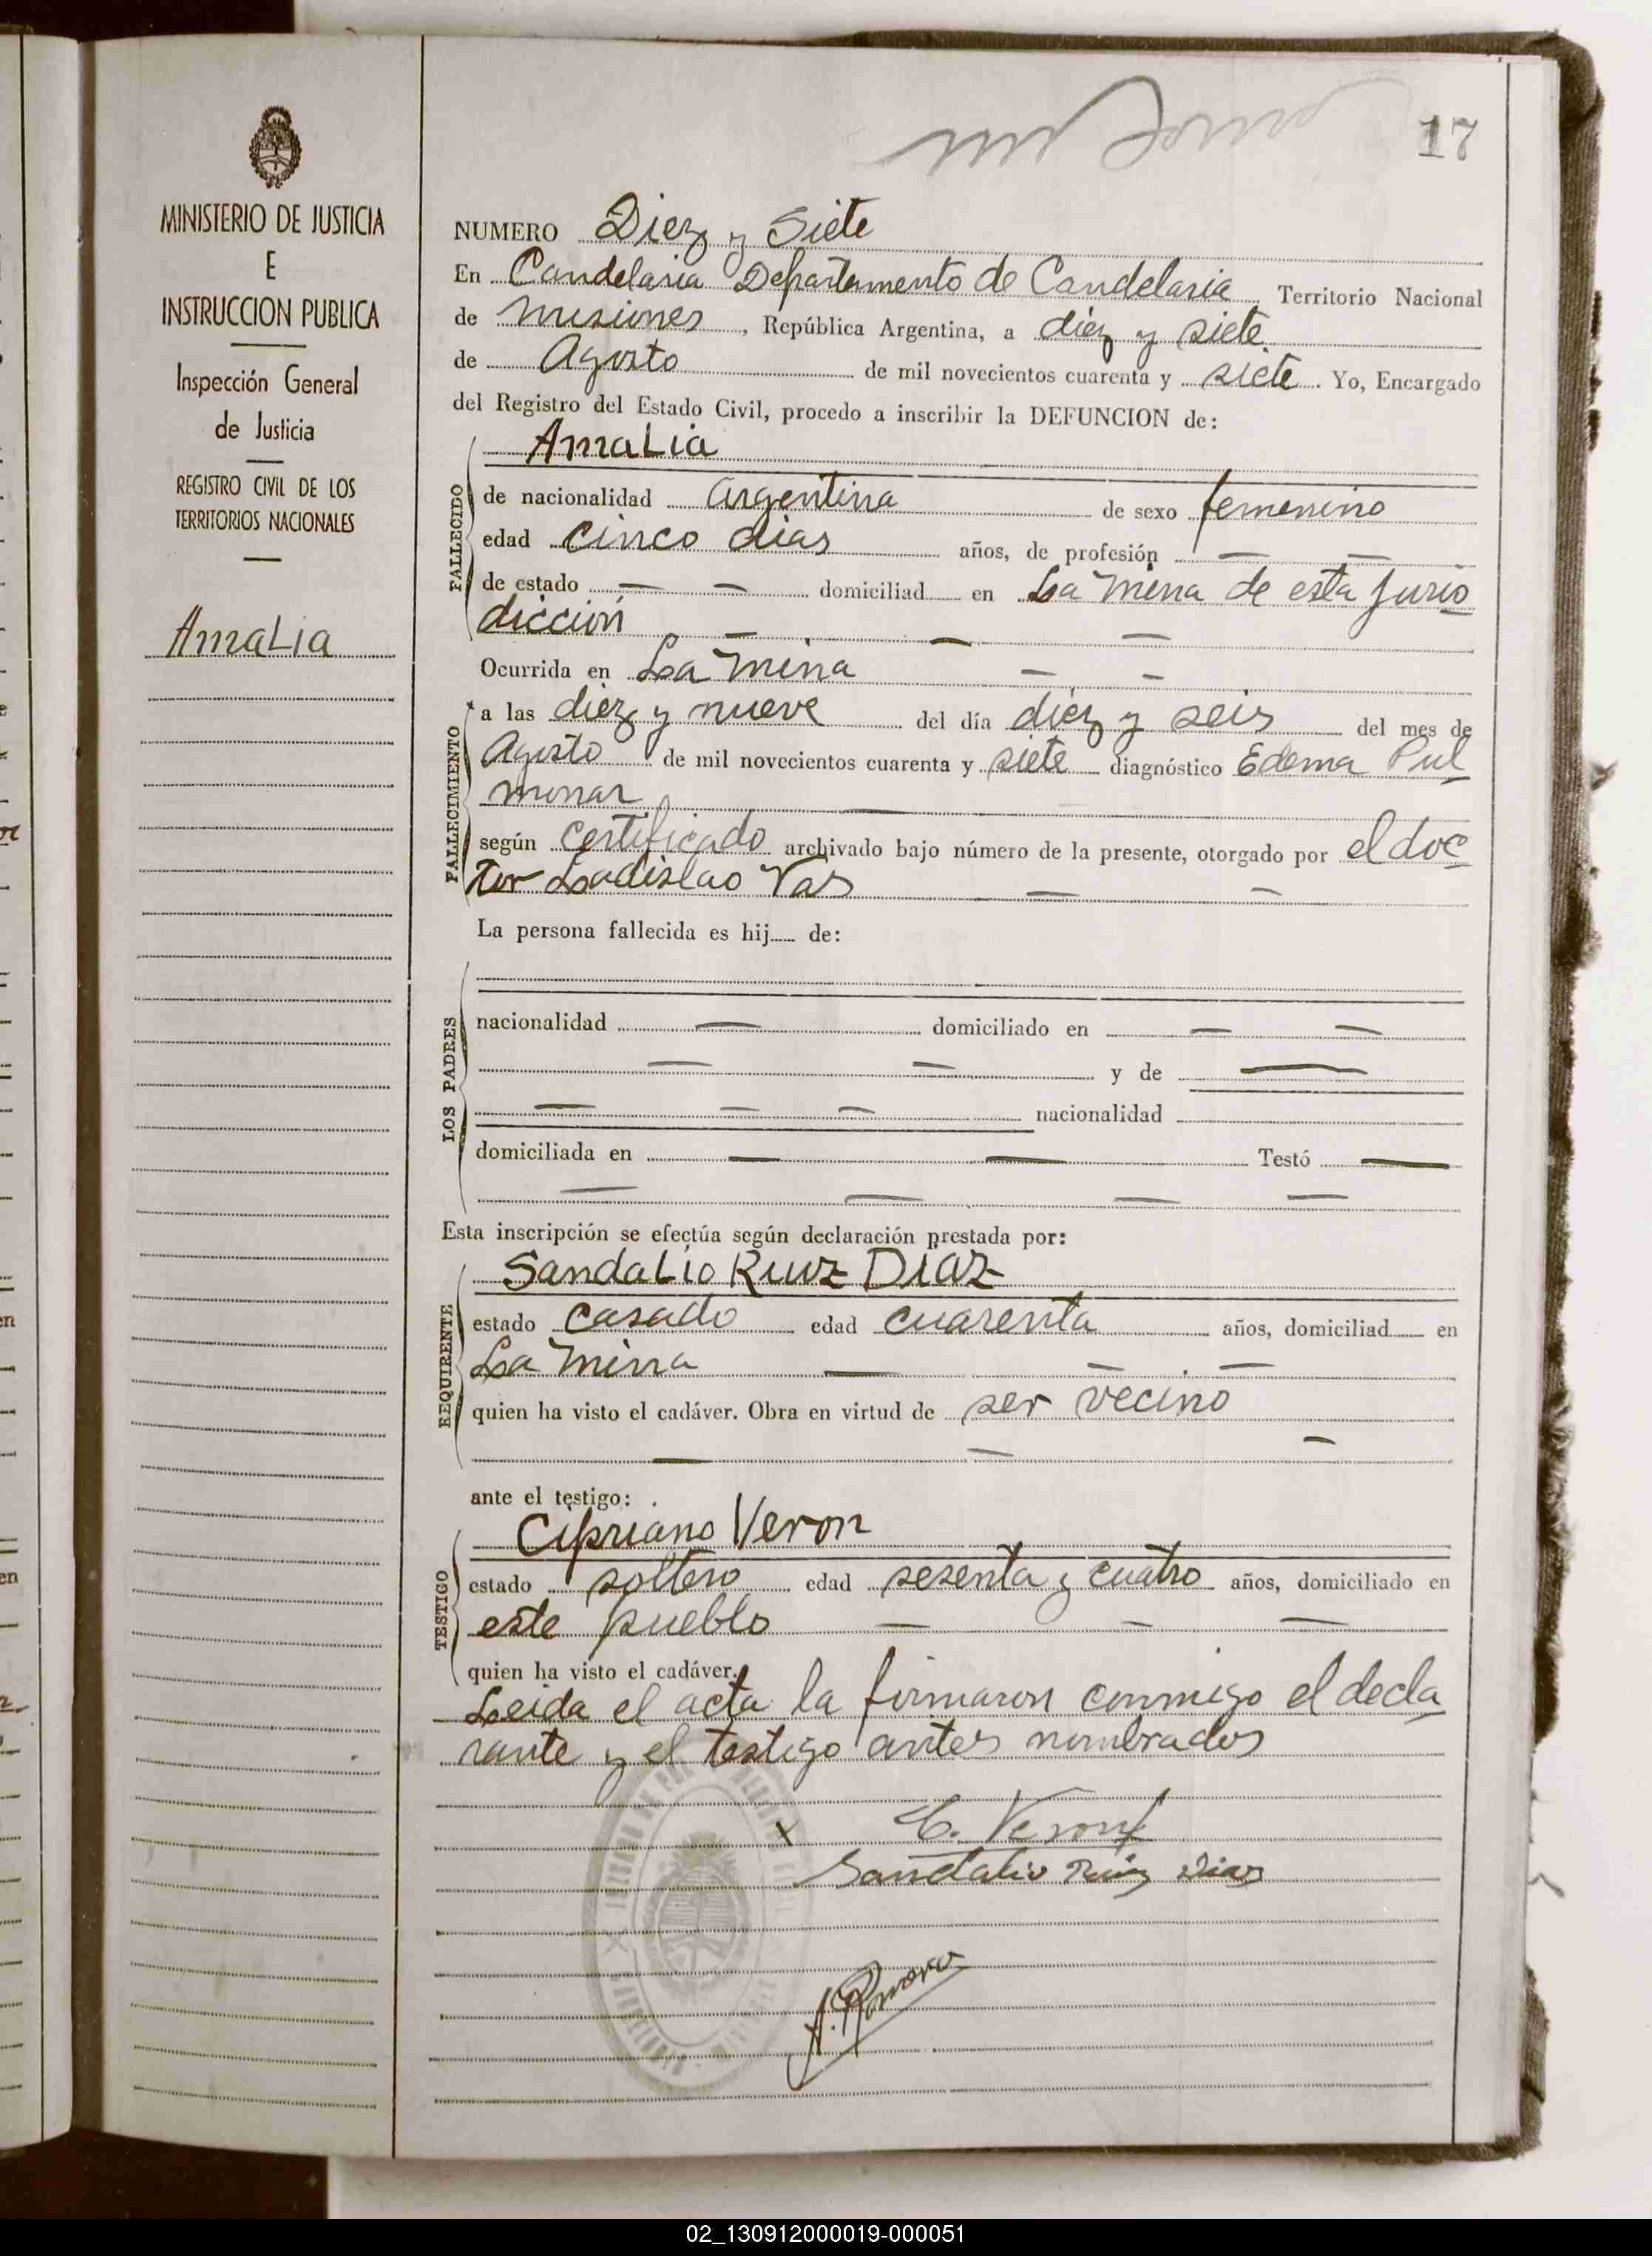 17
MINISTERIO DE JUSTICIA
E
INSTRUCCION PUBLICA
Inspección General
de Justicia
REGISTRO CIVIL DE LOS
TERRITORIOS NACIONALES
Amalia
NUMERO Diez y Siete
En Candelaria Departamento de Candelaria Territorio Nacional
de Misiones, República Argentina, a diez y siete
de Agosto de mil novecientos cuarenta y siete. Yo, Encargado
del Registro del Estado Civil, procedo a inscribir la DEFUNCION de:
Amalia
FALLECIDO
de nacionalidad Argentina de sexo femenino
edad cinco dias años, de profesión — —
de estado — — domiciliad en La Mina de esta Juris
dicción — — —
Ocurrida en La Mina — —
FALLECIMIENTO
a las diez y nueve del día diez y seis del mes de
Agosto de mil novecientos cuarenta y siete diagnóstico Edema Pul
monar —
según certificado archivado bajo número de la presente, otorgado por el doc
tor Ladislao Vas — —
La persona fallecida es hij de:
LOS PADRES
nacionalidad — domiciliado en — —
— — y de —
— — — nacionalidad
domiciliada en — — Testó —
— — — —
Esta inscripción se efectúa según declaración prestada por:
REQUIRENTE
Sandalio Ruiz Diaz
estado casado edad cuarenta años, domiciliad en
La Mina — — —
quien ha visto el cadáver. Obra en virtud de ser vecino
— — —
ante el testigo:
TESTIGO
Cipriano Veron
estado soltero edad sesenta y cuatro años, domiciliado en
este pueblo — — —
quien ha visto el cadáver.
Leida el acta la firmaron conmigo el decla
rante y el testigo antes nombrados
x C. Veron
Sandalio Ruiz Dias
A. Romero
02_130912000019-000051